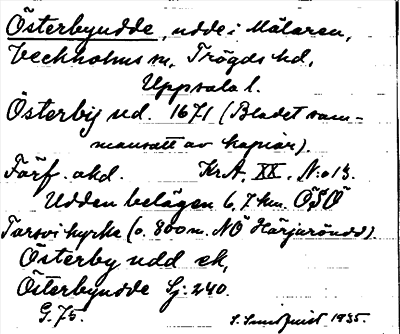 Österbyudde, udde i Mälaren,
Veckholms sn, Trögds hd,
Uppsala l.
Österby ud. 1671 (Bladet sam-
mansatt av kopior).
Förf. okd. Kr.A. XX, N:o 13.
Udden belägen 6,7 km. ÖSÖ
kyrka (o. 800 m. NÖ Härjarönäs).
Österby udd ek,
Österbyudde Sj. 240.
G. 75. S. Sundquist 1935.